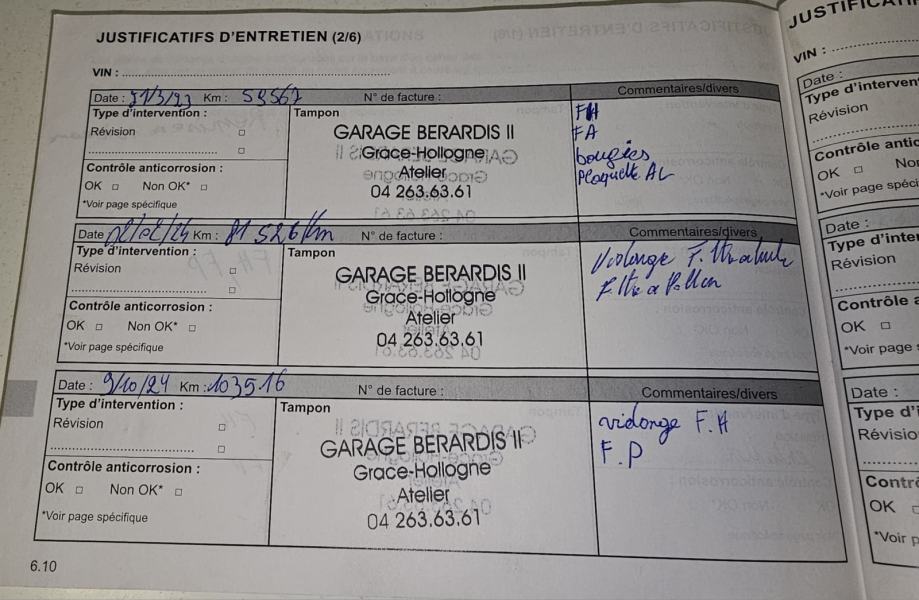 JUSTIFICATIFS D'ENTRETIEN (2/6)
VIN :
Date : 31/3/23 Km : 59567 N° de facture : Commentaires/divers
Type d'intervention :
Révision
Contrôle anticorrosion :
OK Non OK*
*Voir page spécifique
Tampon
GARAGE BERARDIS II
Grace-Hollogne
Atelier
04 263.63.61
FH
FA
bougies
Plaquette AV
Date Km : 81 526 Km N° de facture : Commentaires/divers
Type d'intervention :
Révision
Contrôle anticorrosion :
OK Non OK*
*Voir page spécifique
Tampon
GARAGE BERARDIS II
Grace-Hollogne
Atelier
04 263.63.61
Vidange Filtre a huile
Filtre a Pollen
Date : 9/10/24 Km : 103516 N° de facture : Commentaires/divers
Type d'intervention :
Révision
Contrôle anticorrosion :
OK Non OK*
*Voir page spécifique
Tampon
GARAGE BERARDIS II
Grace-Hollogne
Atelier
04 263.63.61
vidange F.H
F.P
6.10
VIN :
Date :
Révision
OK
Date :
Révision
OK
Date :
OK